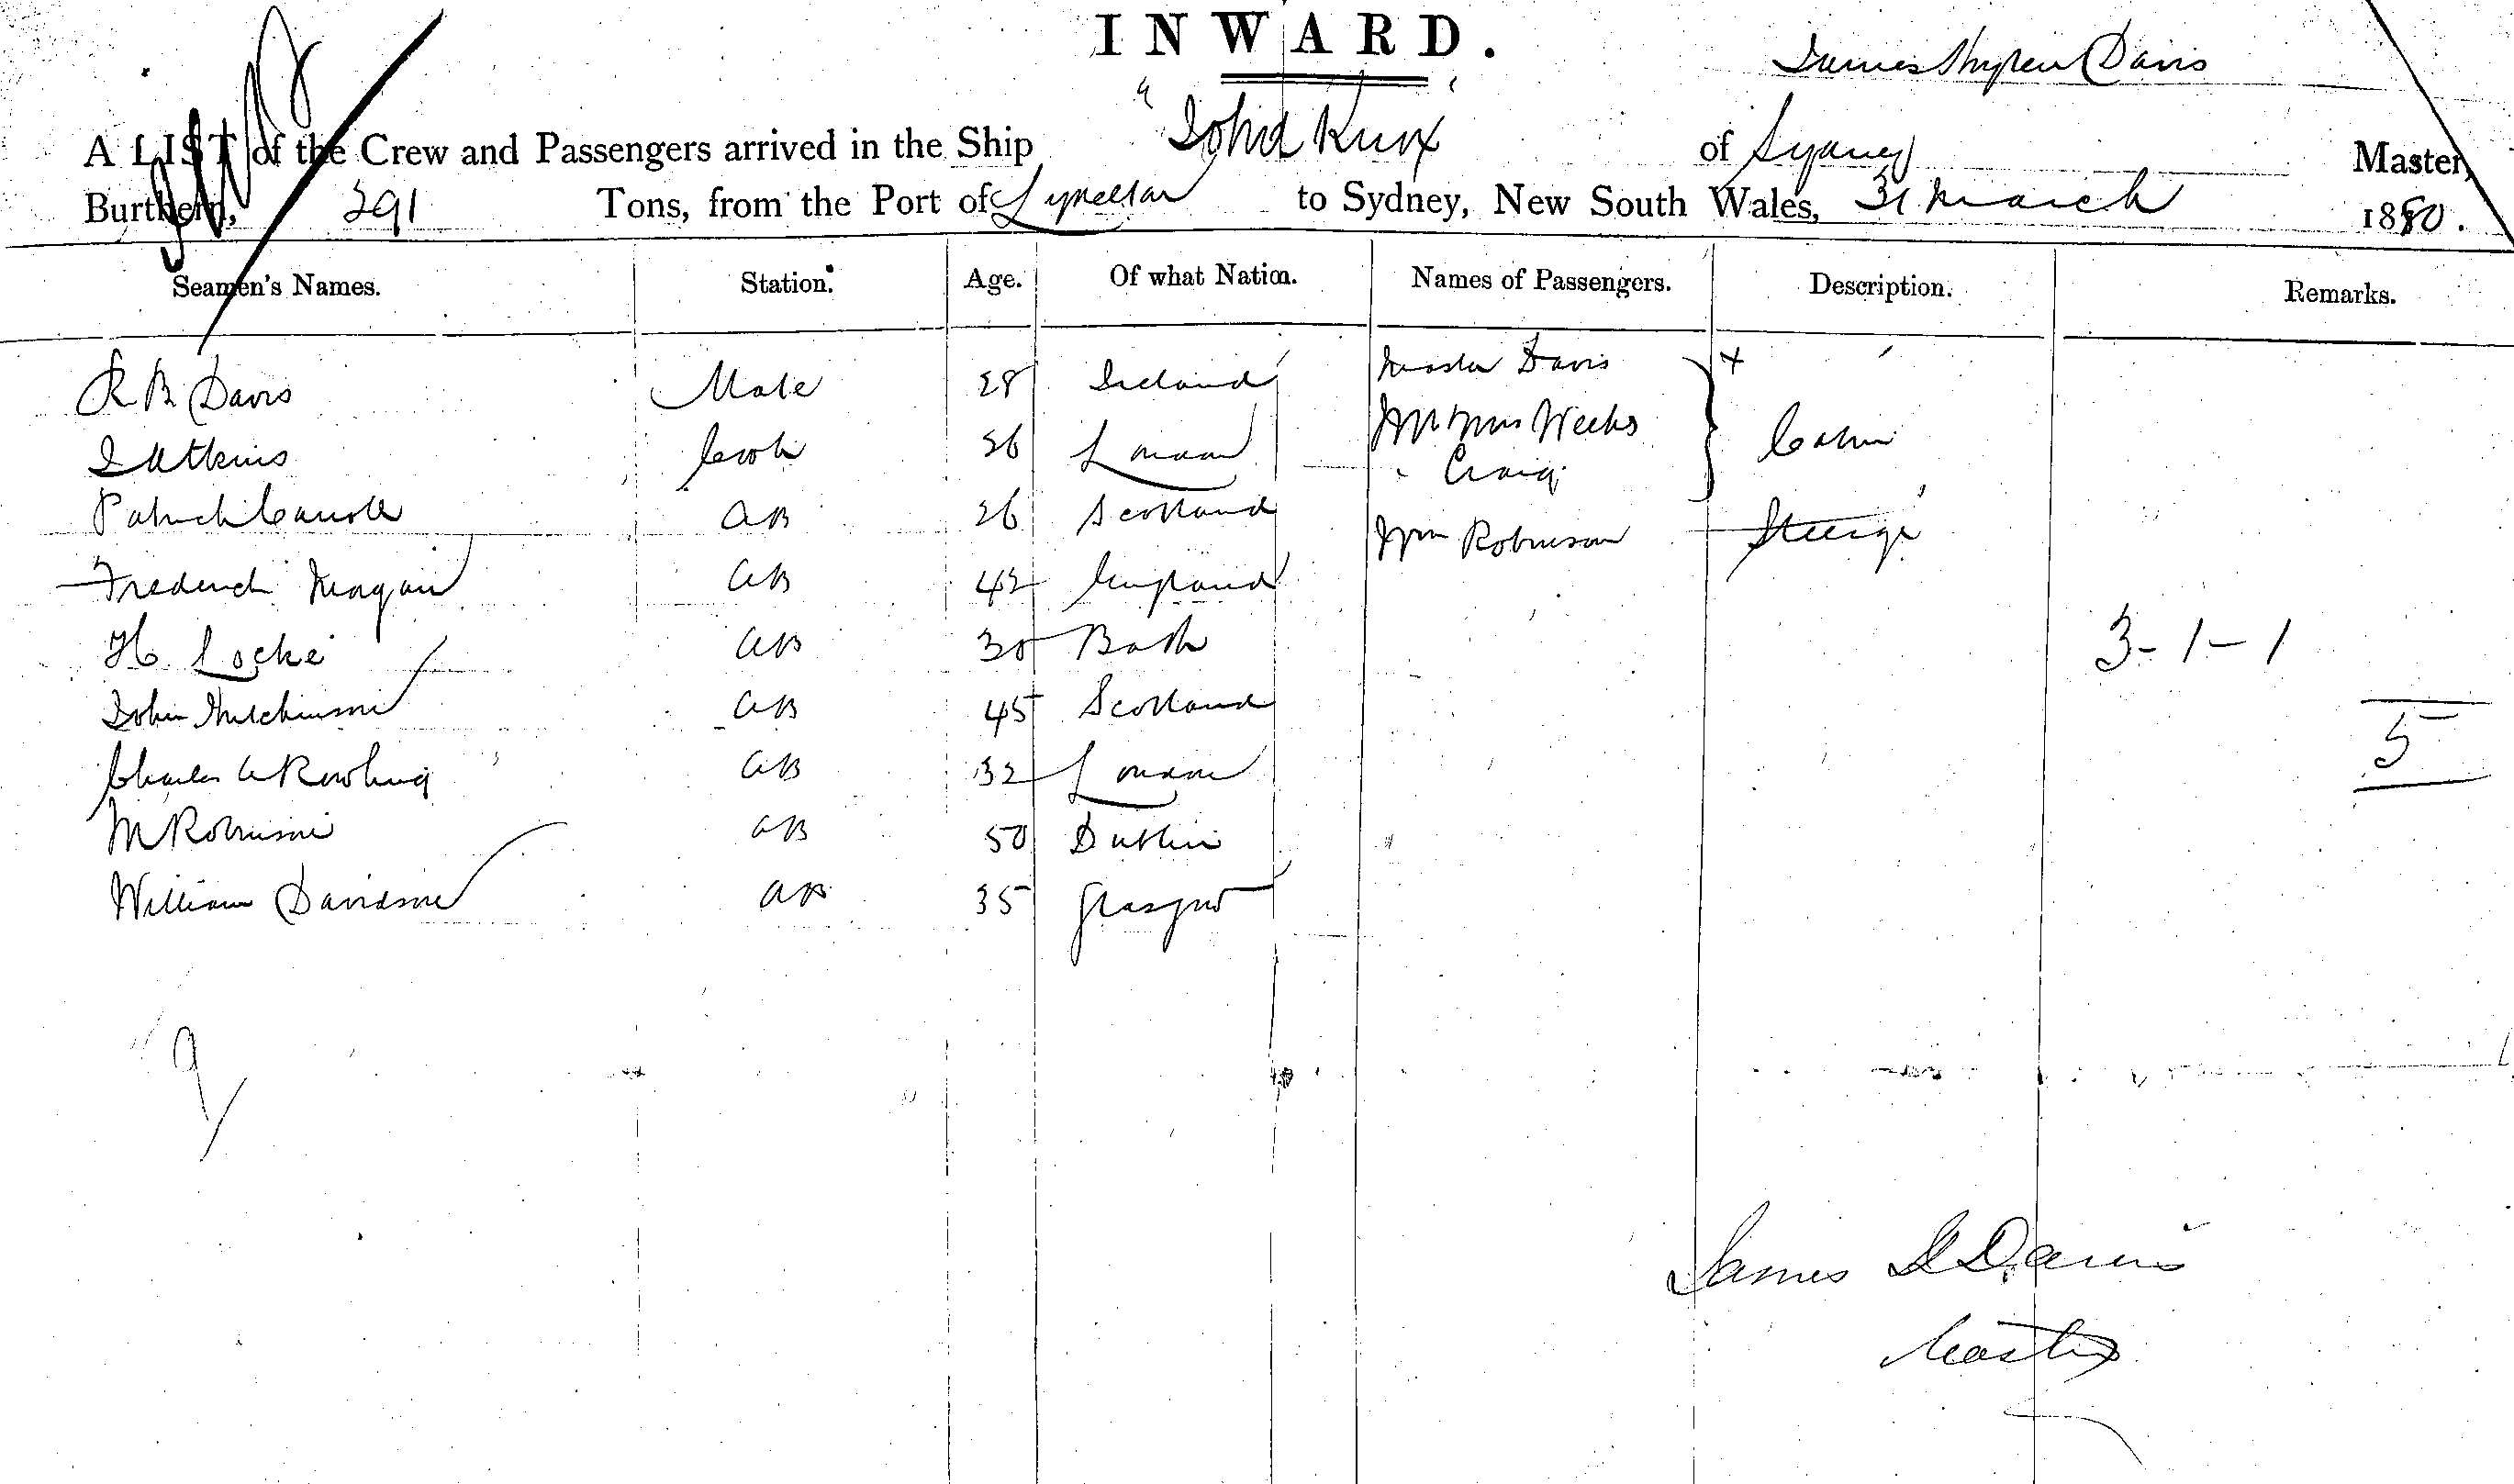 INWARD.
James Davis
A LIST of the Crew and Passengers arrived in the Ship "John Knox" of Sydney Master,
Burthern, 291 Tons, from the Port of Lyttelton to Sydney, New South Wales, 31 March 1880.
Seamen's Names. Station. Age. Of what Nation. Names of Passengers. Description. Remarks.
R B Davis Mate 28 Ireland Master Davis +
J Atkins Cook 26 London Mr & Mrs Weeks Cabin
" Craig
Patrick Carroll AB 26 Scotland Wm Robinson Steerge
Frederick AB 42 England
H Locke AB 30 Bath 3-1-1
John Hutchinson AB 45 Scotland 5
Charles A Rowling AB 32 London
M Robinson AB 50 Dublin
William Davidson AB 35 Glasgow
9
James S Davis
Master